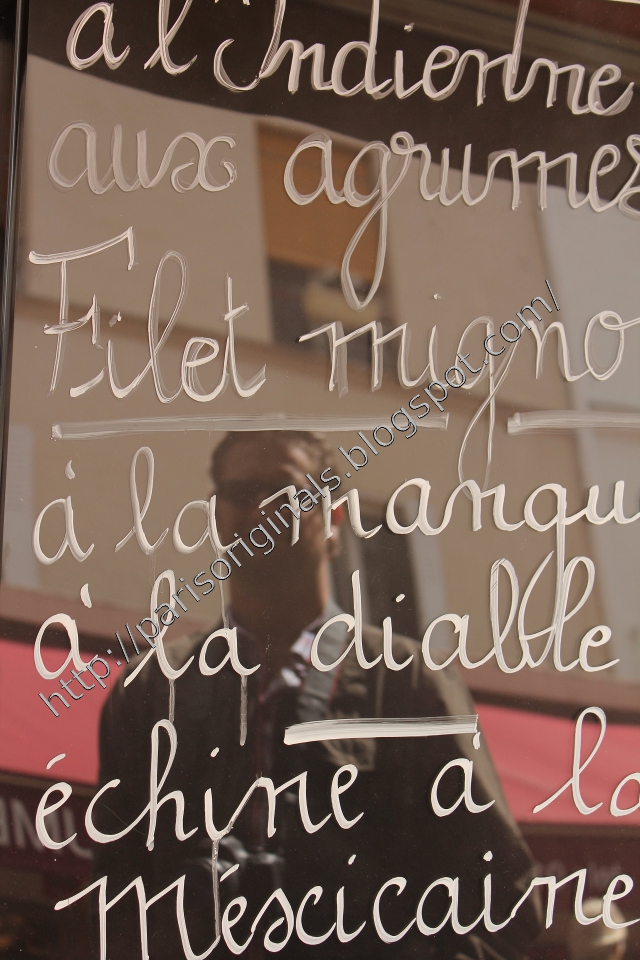 à l'Indienne
aux agrumes
Filet migno
à la marqu
à la diable
échine à la
Méxicaine
http://parisoriginals.blogspot.com/